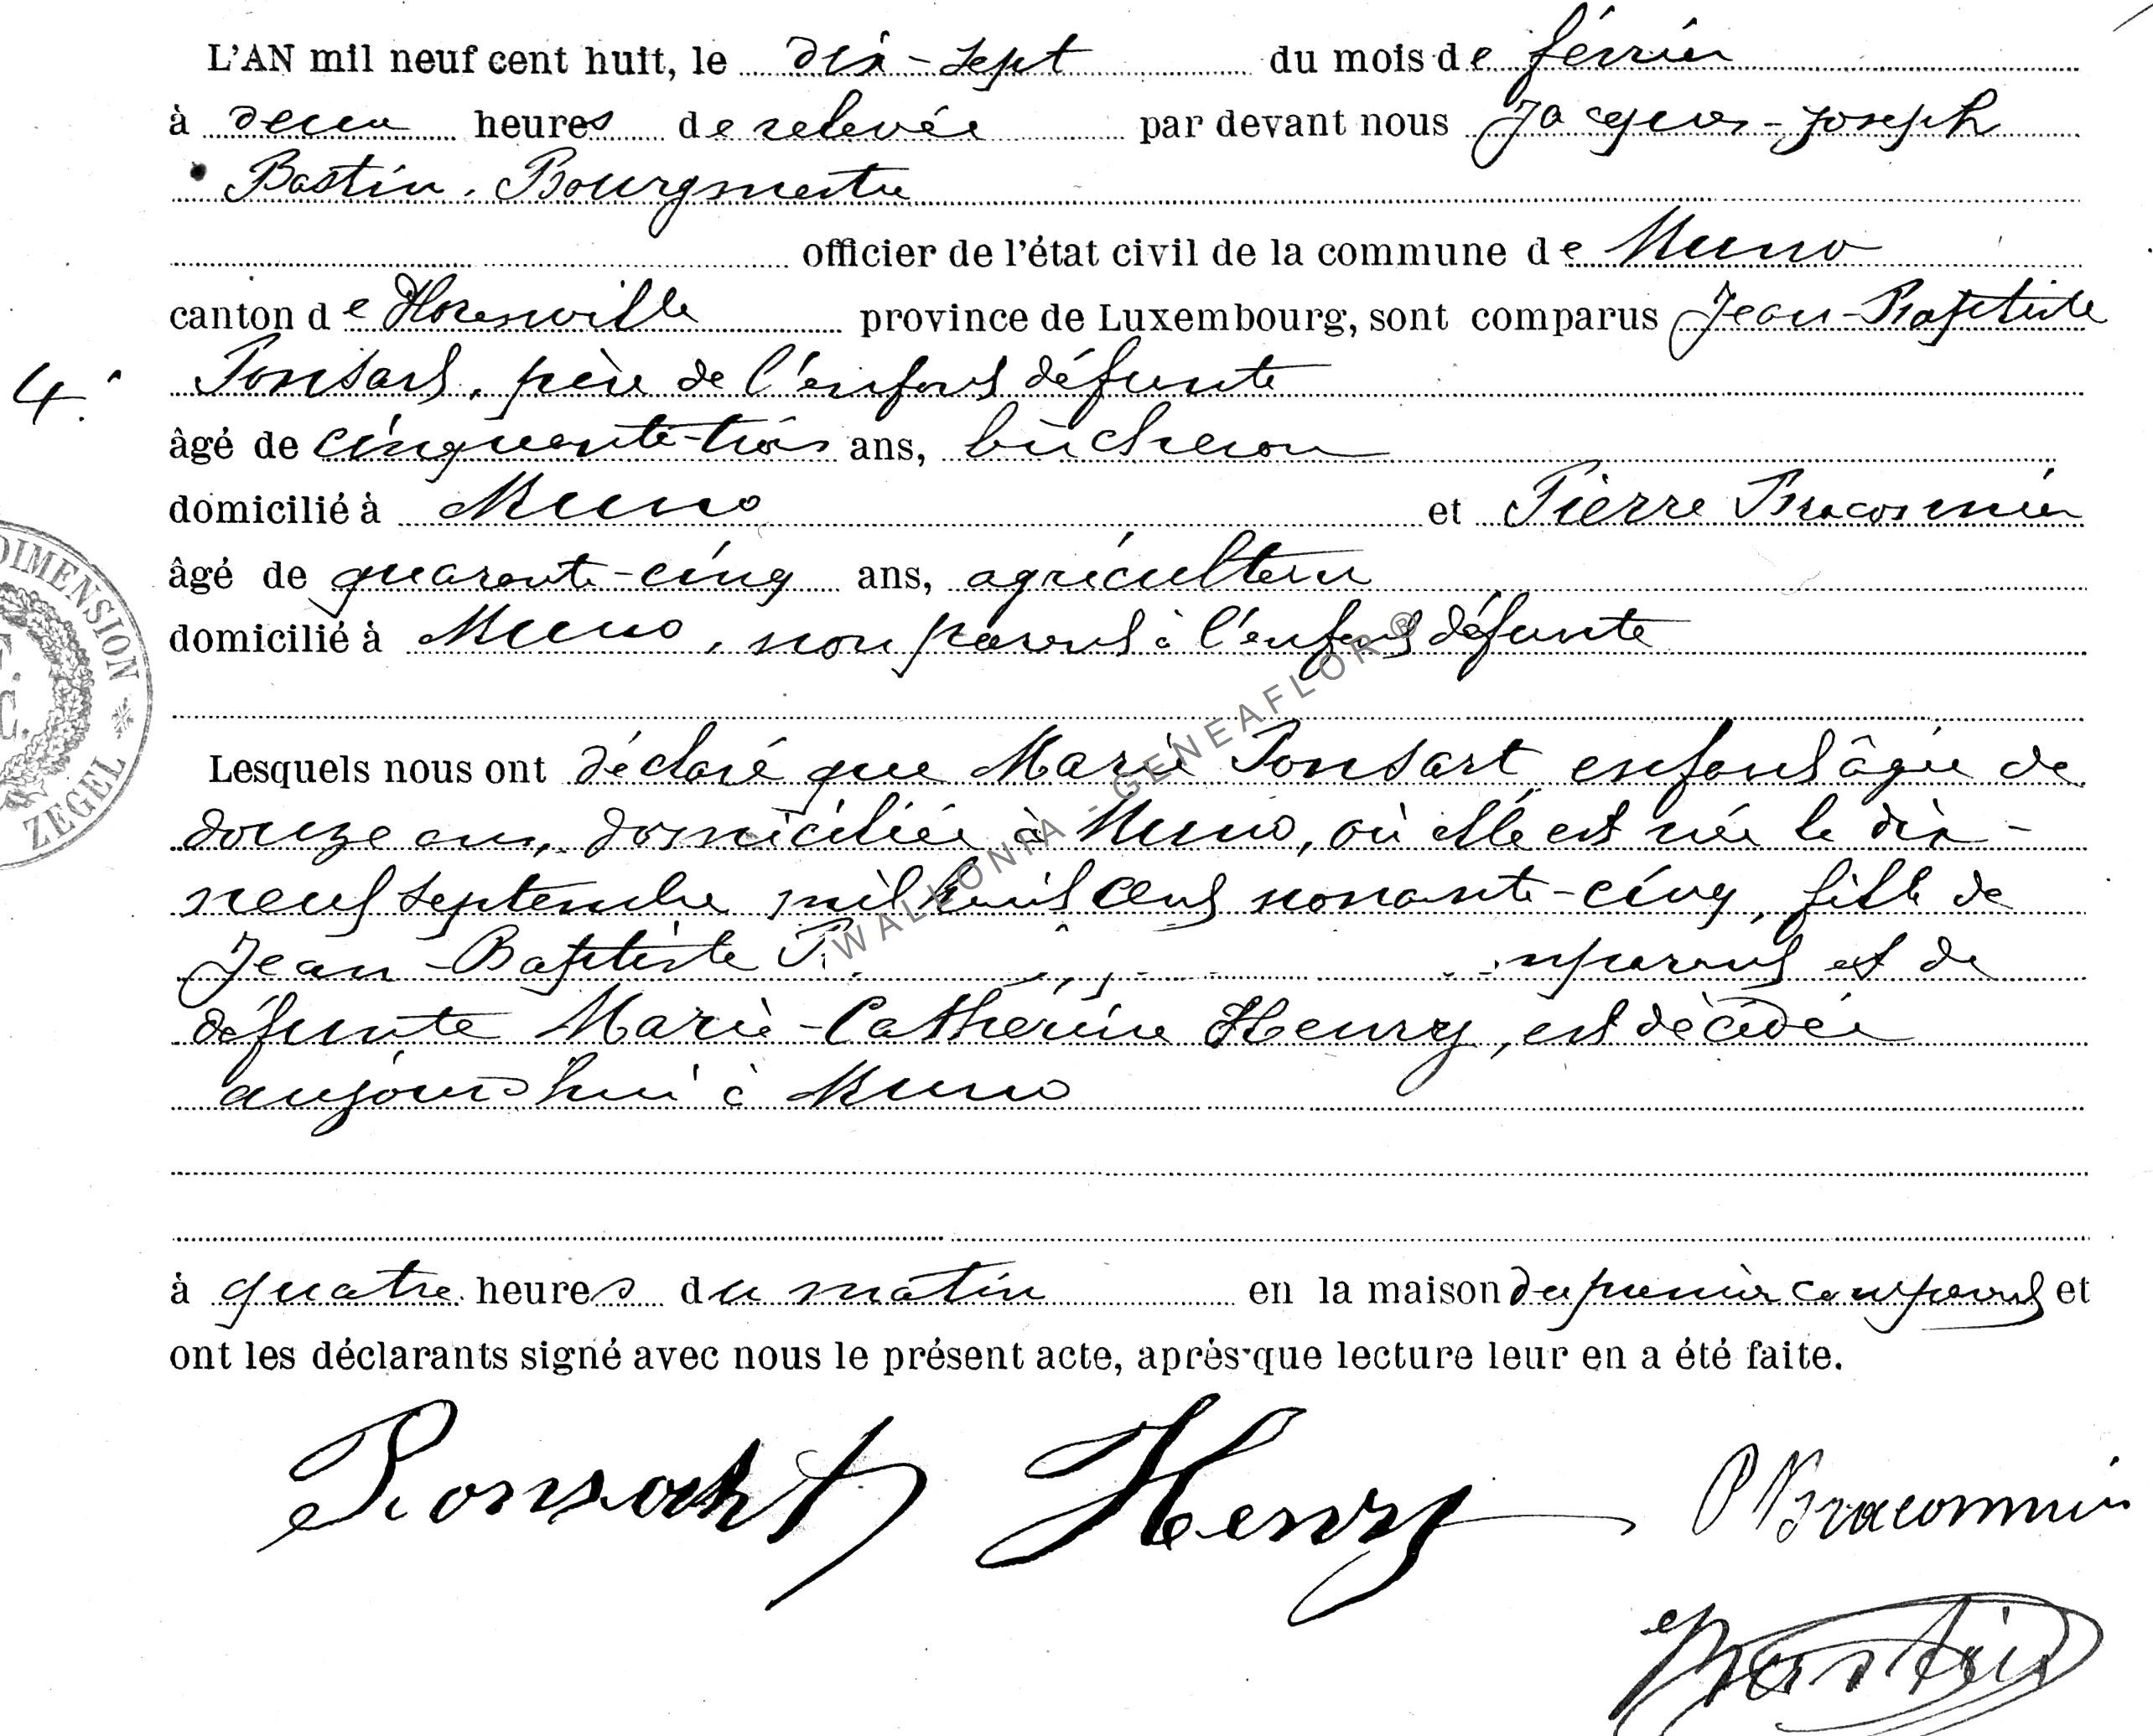 L'AN mil neuf cent huit, le dix-sept du mois de février
à deux heures de relevée par devant nous Jacques-Joseph
Bastin, Bourgmestre
officier de l'état civil de la commune de Muno
canton de Florenville province de Luxembourg, sont comparus Jean-Baptiste
4.
Ponsart, père de l'enfant défunte
âgé de cinquante-trois ans, bûcheron
domicilié à Muno et Pierre Braconnier
âgé de quarante-cinq ans, agriculteur
domicilié à Muno, non parent à l'enfant défunte
DIMENSION
ZEGEL
Lesquels nous ont déclaré que Marie Ponsart enfant âgée de
douze ans, domiciliée à Muno, où elle est née le dix-
neuf septembre mil huit cent nonante-cinq, fille de
Jean-Baptiste et de
défunte Marie-Catherine Henry, est décédée
aujourd'hui à Muno
WALLONIA - GENEAFLOR®
à quatre heures du matin en la maison du premier comparant et
ont les déclarants signé avec nous le présent acte, après que lecture leur en a été faite.
Ponsart Henry P Braconnier
Bastin